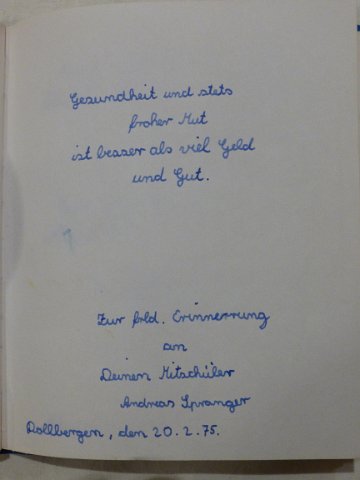 Gesundheit und stets
froher Mut
ist besser als viel Geld
und Gut.
Zur frld. Erinnerrung
an
Deinen Mitschüler
Andreas Spranger
Dollbergen, den 20.2.75.